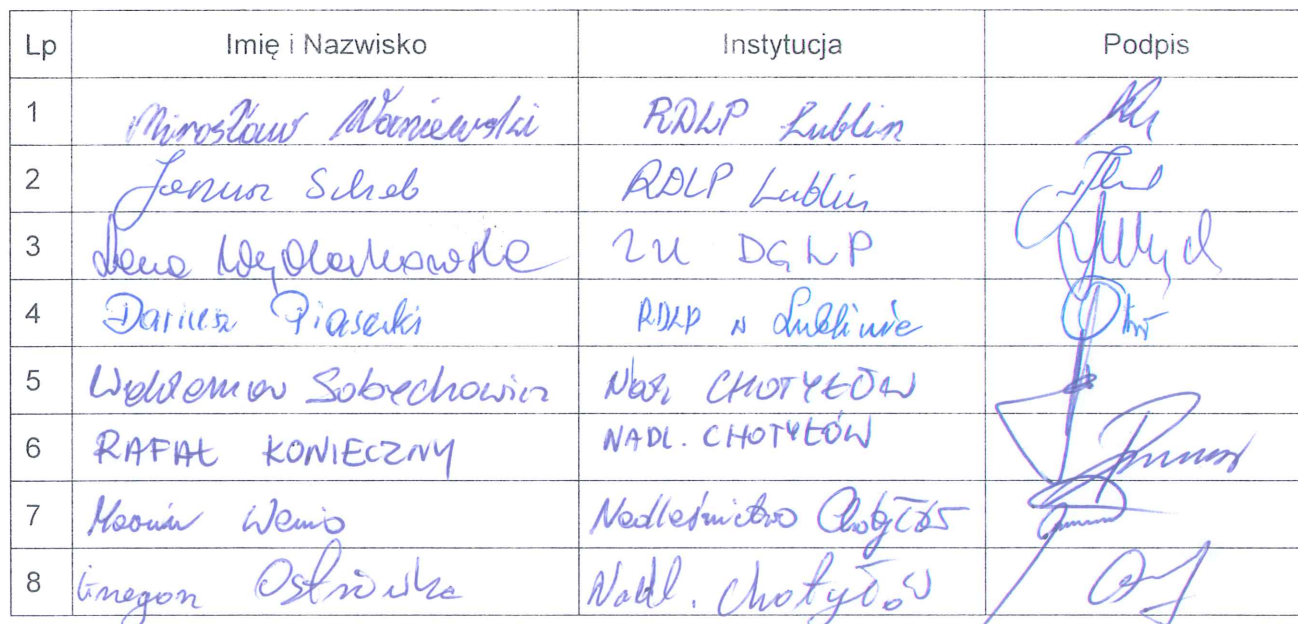 Lp Imię i Nazwisko Instytucja Podpis
1 Mirosław Waniewski RDLP Lublin
2 Janusz Scheb RDLP Lublin
3 ZU DGLP
4 Dariusz Piasecki RDLP w Lublinie
5 Waldemar Sobechowicz Nadl. CHOTYŁÓW
6 RAFAŁ KONIECZNY NADL. CHOTYŁÓW
7 Marcin Nadleśnictwo Chotyłów
8 Grzegorz Ostrówka Nadl. Chotyłów